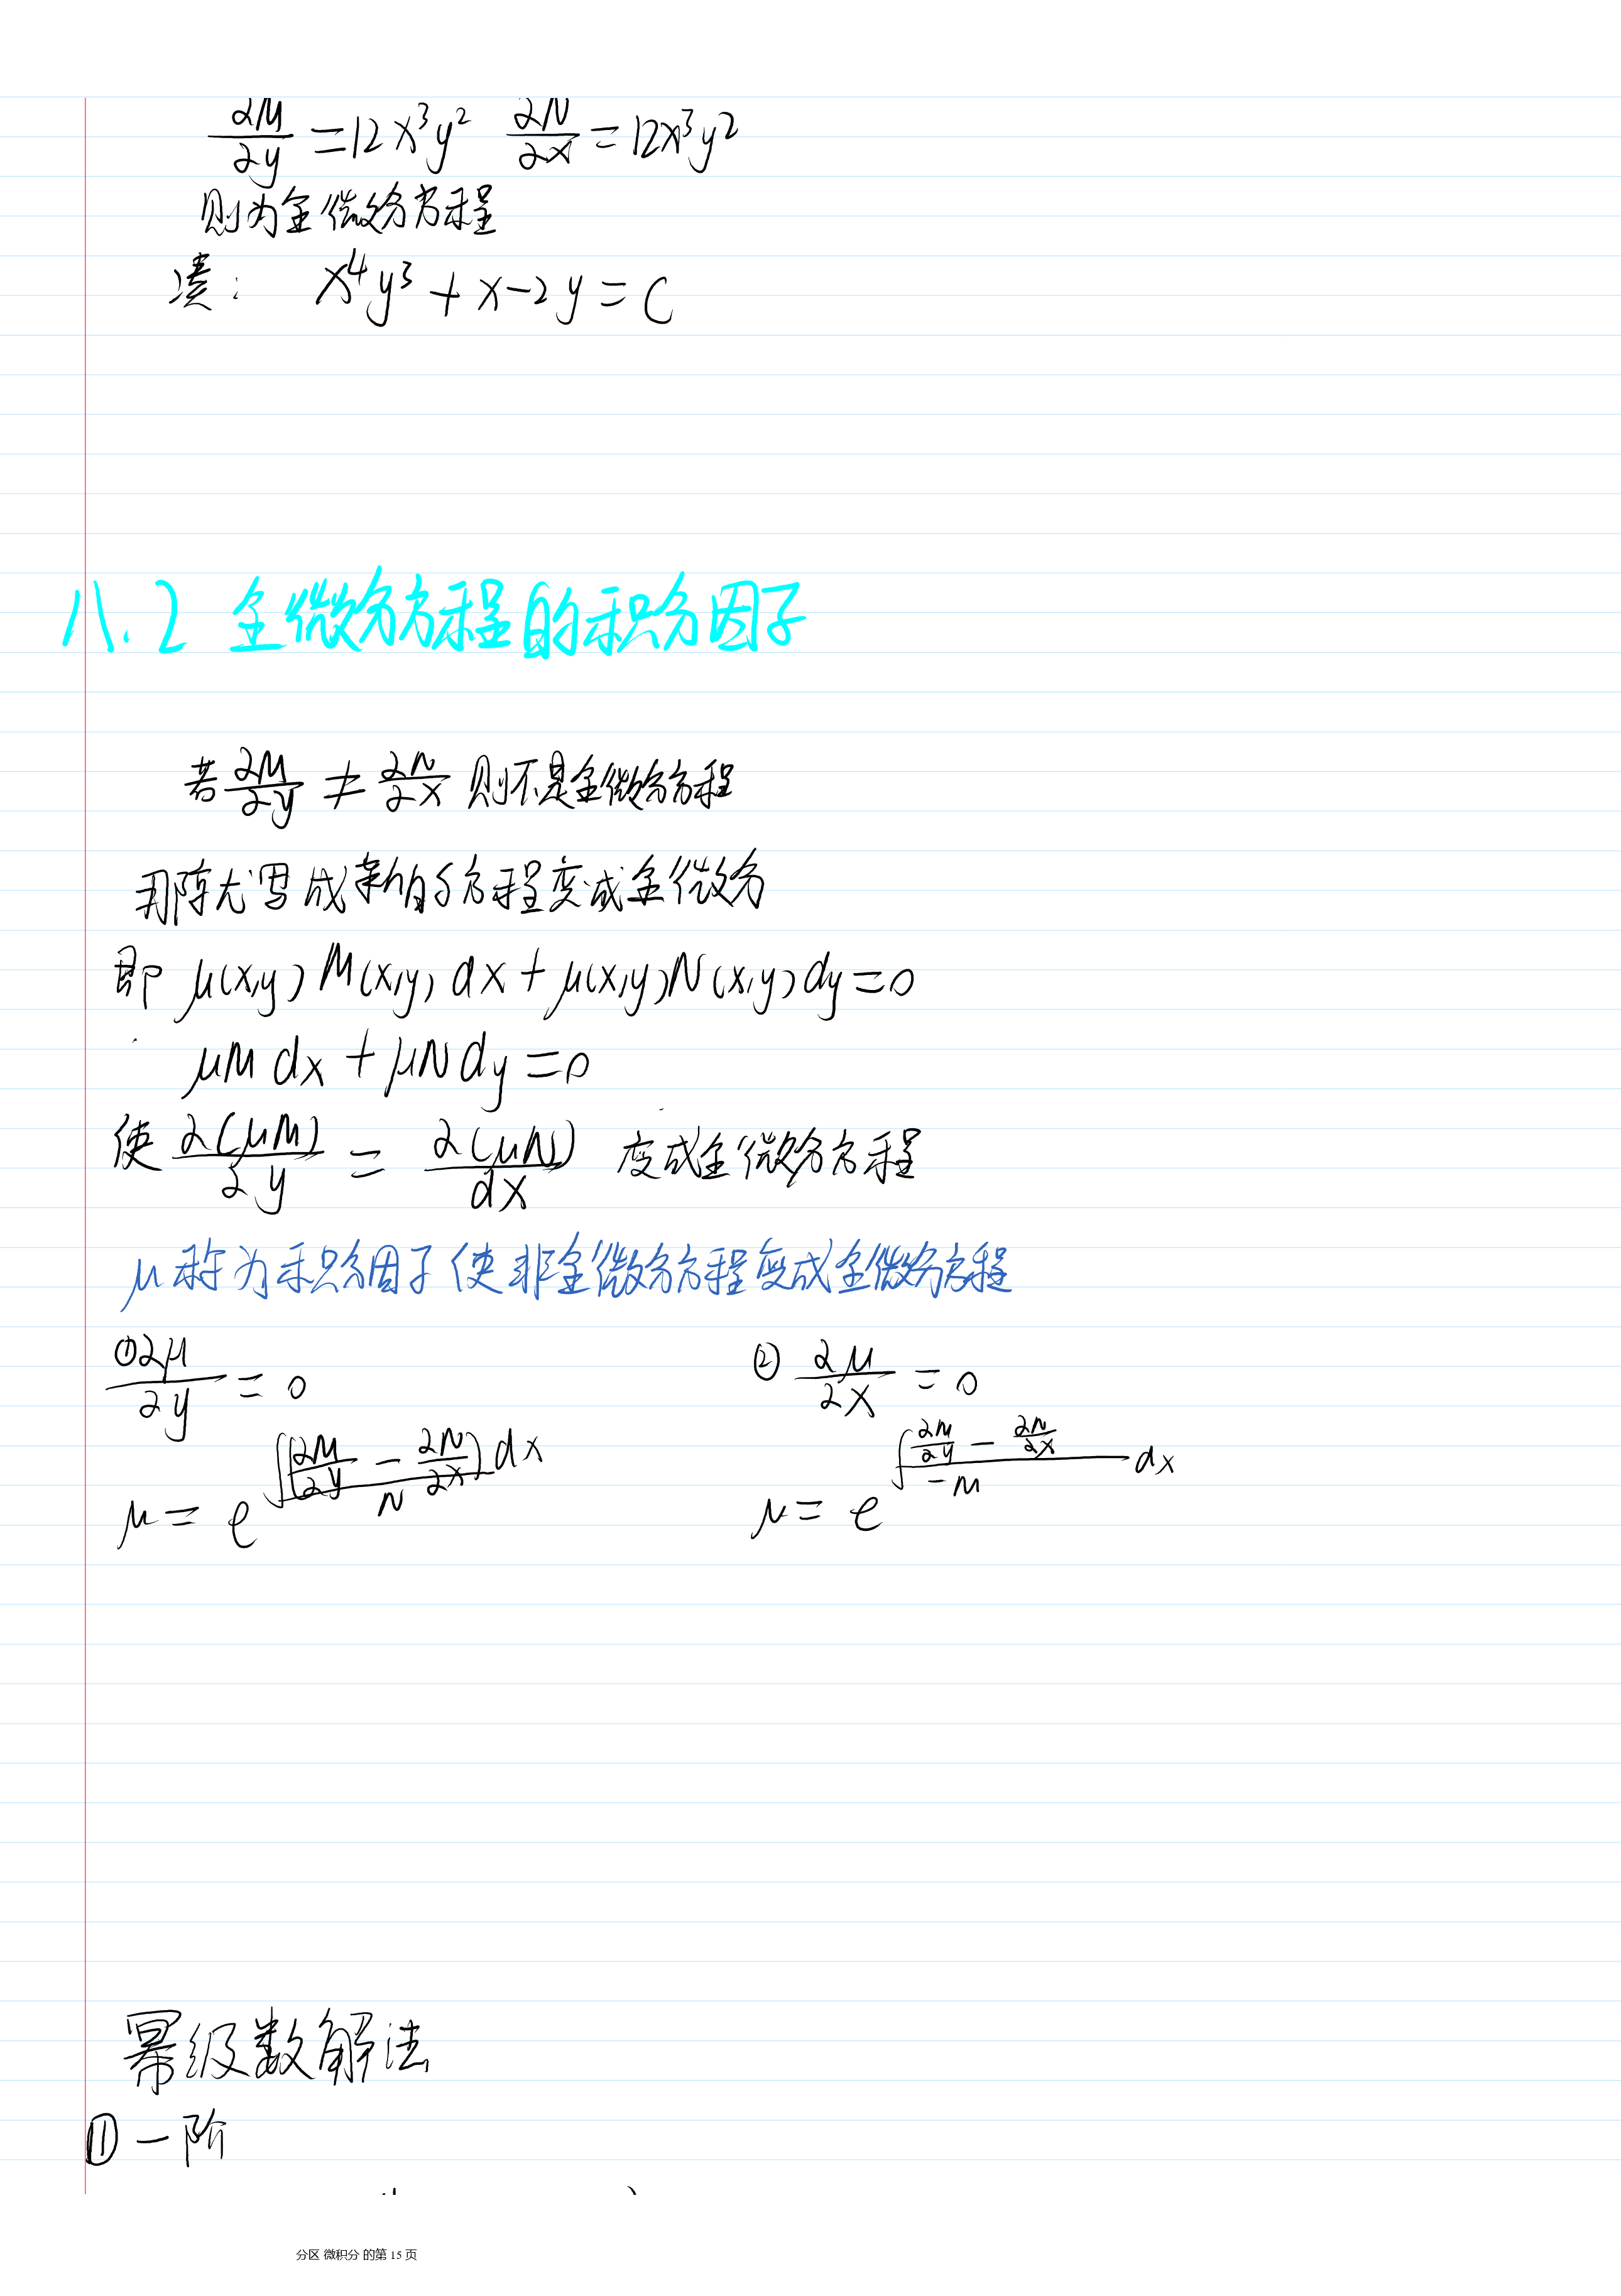 ∂M/∂y = 12x³y² ∂N/∂x = 12x³y²
则为全微分方程
凑: x⁴y³ + x - 2y = C
八.2 全微分方程的积分因子
若 ∂M/∂y ≠ ∂N/∂x 则不是全微分方程
写成 方程变成全微分
即 μ(x,y) M(x,y) dx + μ(x,y) N(x,y) dy = 0
μM dx + μN dy = 0
使 ∂(μM)/∂y = ∂(μN)/dx 变成全微分方程
μ称为积分因子使非全微分方程变成全微分方程
① ∂μ/∂y = 0 ② ∂μ/∂x = 0
μ = e^∫(∂M/∂y - ∂N/∂x)/N dx μ = e^∫(∂M/∂y - ∂N/∂x)/-M dx
幂级数解法
① 一阶
分区 微积分 的第 15 页